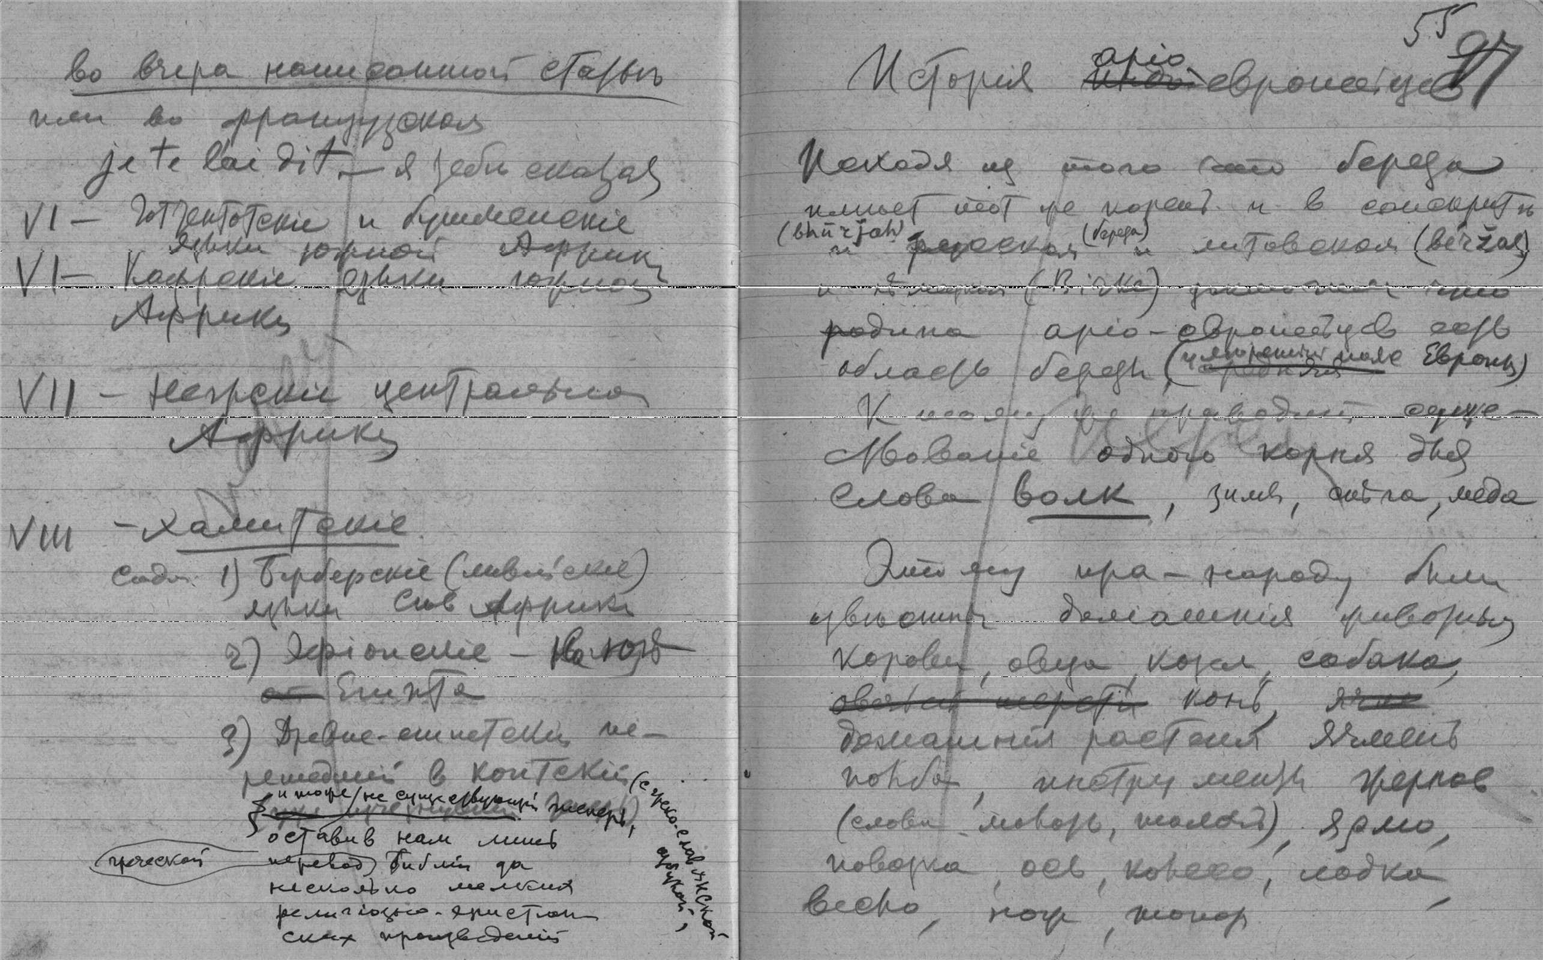 во вчера написанной статьѣ
или во французском
je te l'ai dit — я тебѣ сказал
VI — Готтентотскіе и бушменскіе
языки южной Африки
VI — Кафрскіе языки южной
Африки
VII — Негрскіе центральной
Африки
VIII — Хамитскіе
1) Берберскіе (ливійскіе)
языки Сѣв Африки
2) Эфіопскіе — на югѣ
от Египта
3) Древне-египетскій пе-
решедшій в коптскій (с греко-славянской азбукой),
и тоже не существующій теперь,
оставив нам лишь
греческой
перевод библіи да
несколько мелких
религіозно-христіан
ских произведеній
55
97
Исторія аріо европейцев
Исходя из того что береза
имѣет тот же корень и в санскритѣ
(bhūrjah) (береза)
и русском и литовском (béržas)
и (Birke)
родина аріо-европейцев есть
область березы, Европы)
К тому же приводит суще-
ствованіе одного корня для
слова волк, зима, снѣга, меда
Этому пра-народу были
извѣстны домашнія животныя
корова, овца, козел, собака,
овечья шерсть конь,
домашнія растенія ячмень
инструменты жернов
(слова молоть), ярмо,
повозка, ось, колесо, лодка,
весло, нож, топор